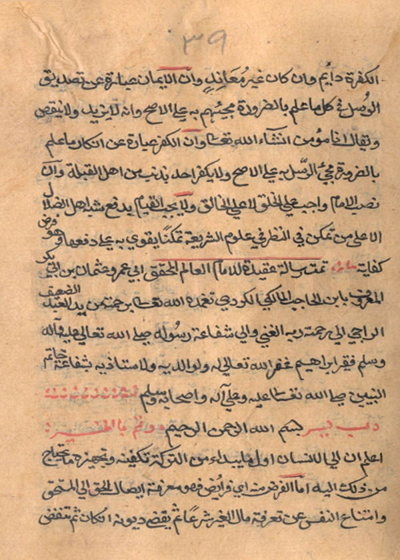 ٣٩
الكفرة دايم وان كان غير معاند وان الايمان عبارة عن تصديق
الرسل في كل ما علم بالضرورة مجيئهم به على الاصح وانه لا يزيد ولا ينقص
ويقال انا مؤمن ان شاء الله تعالى وان الكفر عبارة عن انكار ما علم
بالضرورة مجيء الرسل به على الاصح ولا يكفر احد بذنب من اهل القبلة وان
نصب الامام واجب على الخلق لا على الخالق ولا يجب القيام بدفع شبه اهل الضلال
الا على من تمكن في النظر في علوم الشريعة تمكنا يقوى به على دفعها وهو فرض
كفاية تمت رسالة عقيدة للامام العالم المحقق ابي عمرو عثمان بن ابي بكر
المعروف بابن الحاجب المالكي الكردي تغمده الله تعالى برحمته من يد العبد الضعيف
الراجي الى رحمة ربه الغني والى شفاعة رسوله صلى الله تعالى عليه وآله
وسلم فقير ابراهيم غفر الله تعالى له ولوالديه ولاستاذيه بشفاعة خاتم
النبيين صلى الله تعالى عليه وعلى آله واصحابه وسلم
رب يسر بسم الله الرحمن الرحيم وتمم بالخير
اعلم ان الى للانسان اولا يبداء من التركة تكفينه وتجهيزه مما يحتاج
من ذلك اليه اما الفرض منه اي وايض فهو معرفة ايصال الحق الى المستحق
وامتناع النفس عن تعرفة مال الغير شرعا ثم يقضى ديونه ان كان ثم تنفض